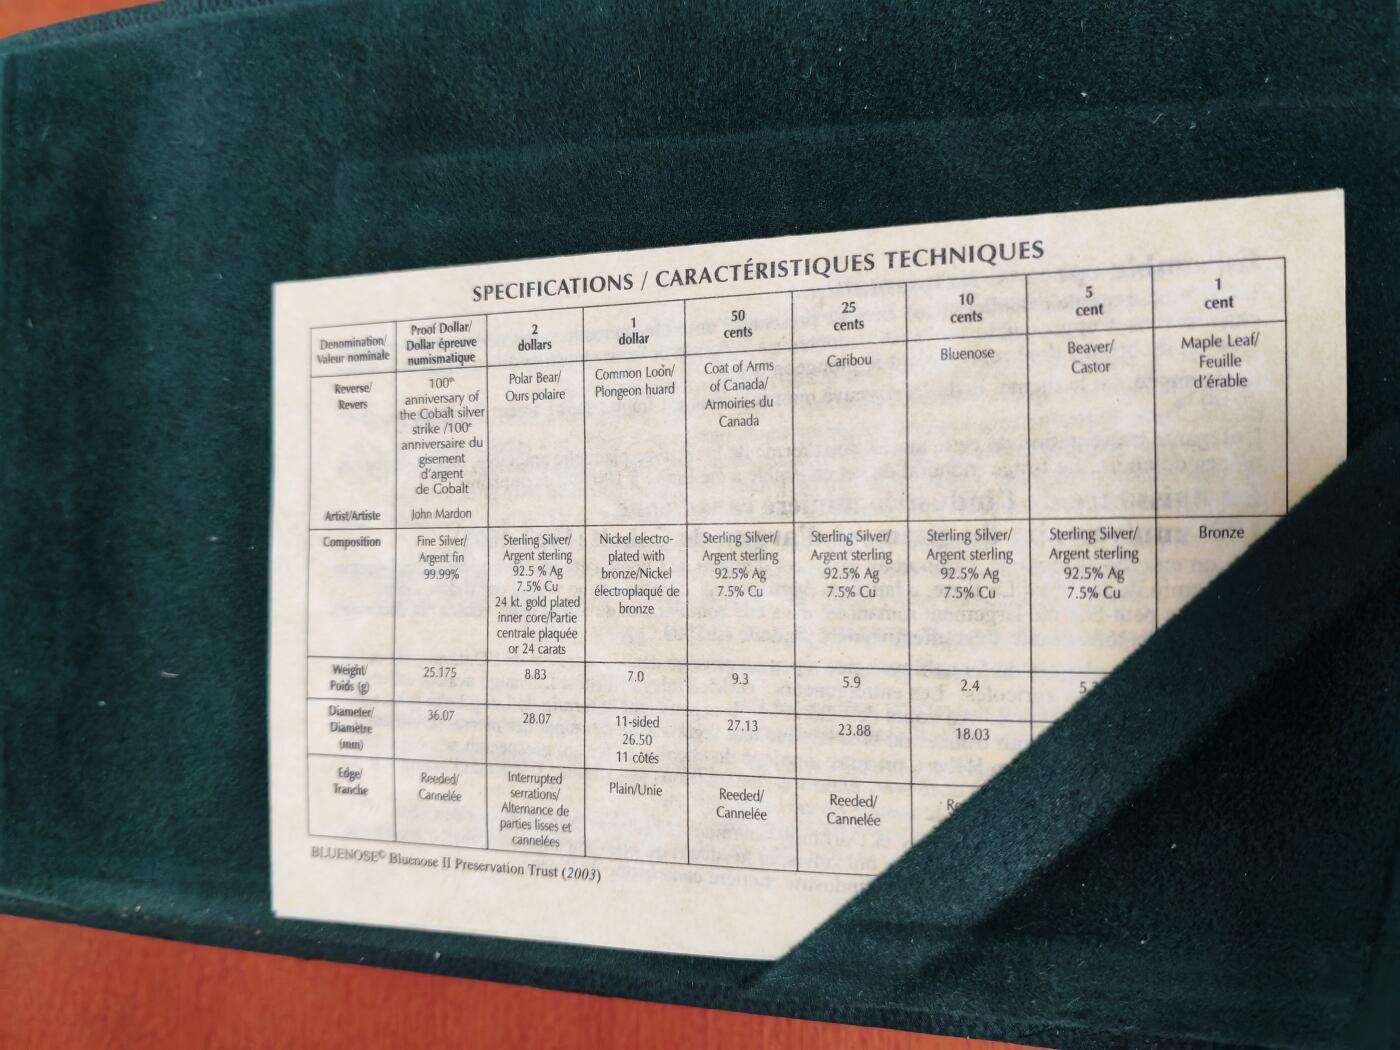 SPECIFICATIONS / CARACTÉRISTIQUES TECHNIQUES
Denomination/
Valeur nominale
Proof Dollar/
Dollar épreuve
numismatique
2
dollars
1
dollar
50
cents
25
cents
10
cents
5
cent
1
cent
Reverse/
Revers
100th
anniversary of
the Cobalt silver
strike /100e
anniversaire du
gisement
d'argent
de Cobalt
Polar Bear/
Ours polaire
Common Loon/
Plongeon huard
Coat of Arms
of Canada/
Armoiries du
Canada
Caribou
Bluenose
Beaver/
Castor
Maple Leaf/
Feuille
d'érable
Artist/Artiste
John Mardon
Composition
Fine Silver/
Argent fin
99.99%
Sterling Silver/
Argent sterling
92.5 % Ag
7.5% Cu
24 kt. gold plated
inner core/Partie
centrale plaquée
or 24 carats
Nickel electro-
plated with
bronze/Nickel
électroplaqué de
bronze
Sterling Silver/
Argent sterling
92.5% Ag
7.5% Cu
Sterling Silver/
Argent sterling
92.5% Ag
7.5% Cu
Sterling Silver/
Argent sterling
92.5% Ag
7.5% Cu
Sterling Silver/
Argent sterling
92.5% Ag
7.5% Cu
Bronze
Weight/
Poids (g)
25.175
8.83
7.0
9.3
5.9
2.4
Diameter/
Diamètre
(mm)
36.07
28.07
11-sided
26.50
11 côtés
27.13
23.88
18.03
Edge/
Tranche
Reeded/
Cannelée
Interrupted
serrations/
Alternance de
parties lisses et
cannelées
Plain/Unie
Reeded/
Cannelée
Reeded/
Cannelée
BLUENOSE© Bluenose II Preservation Trust (2003)